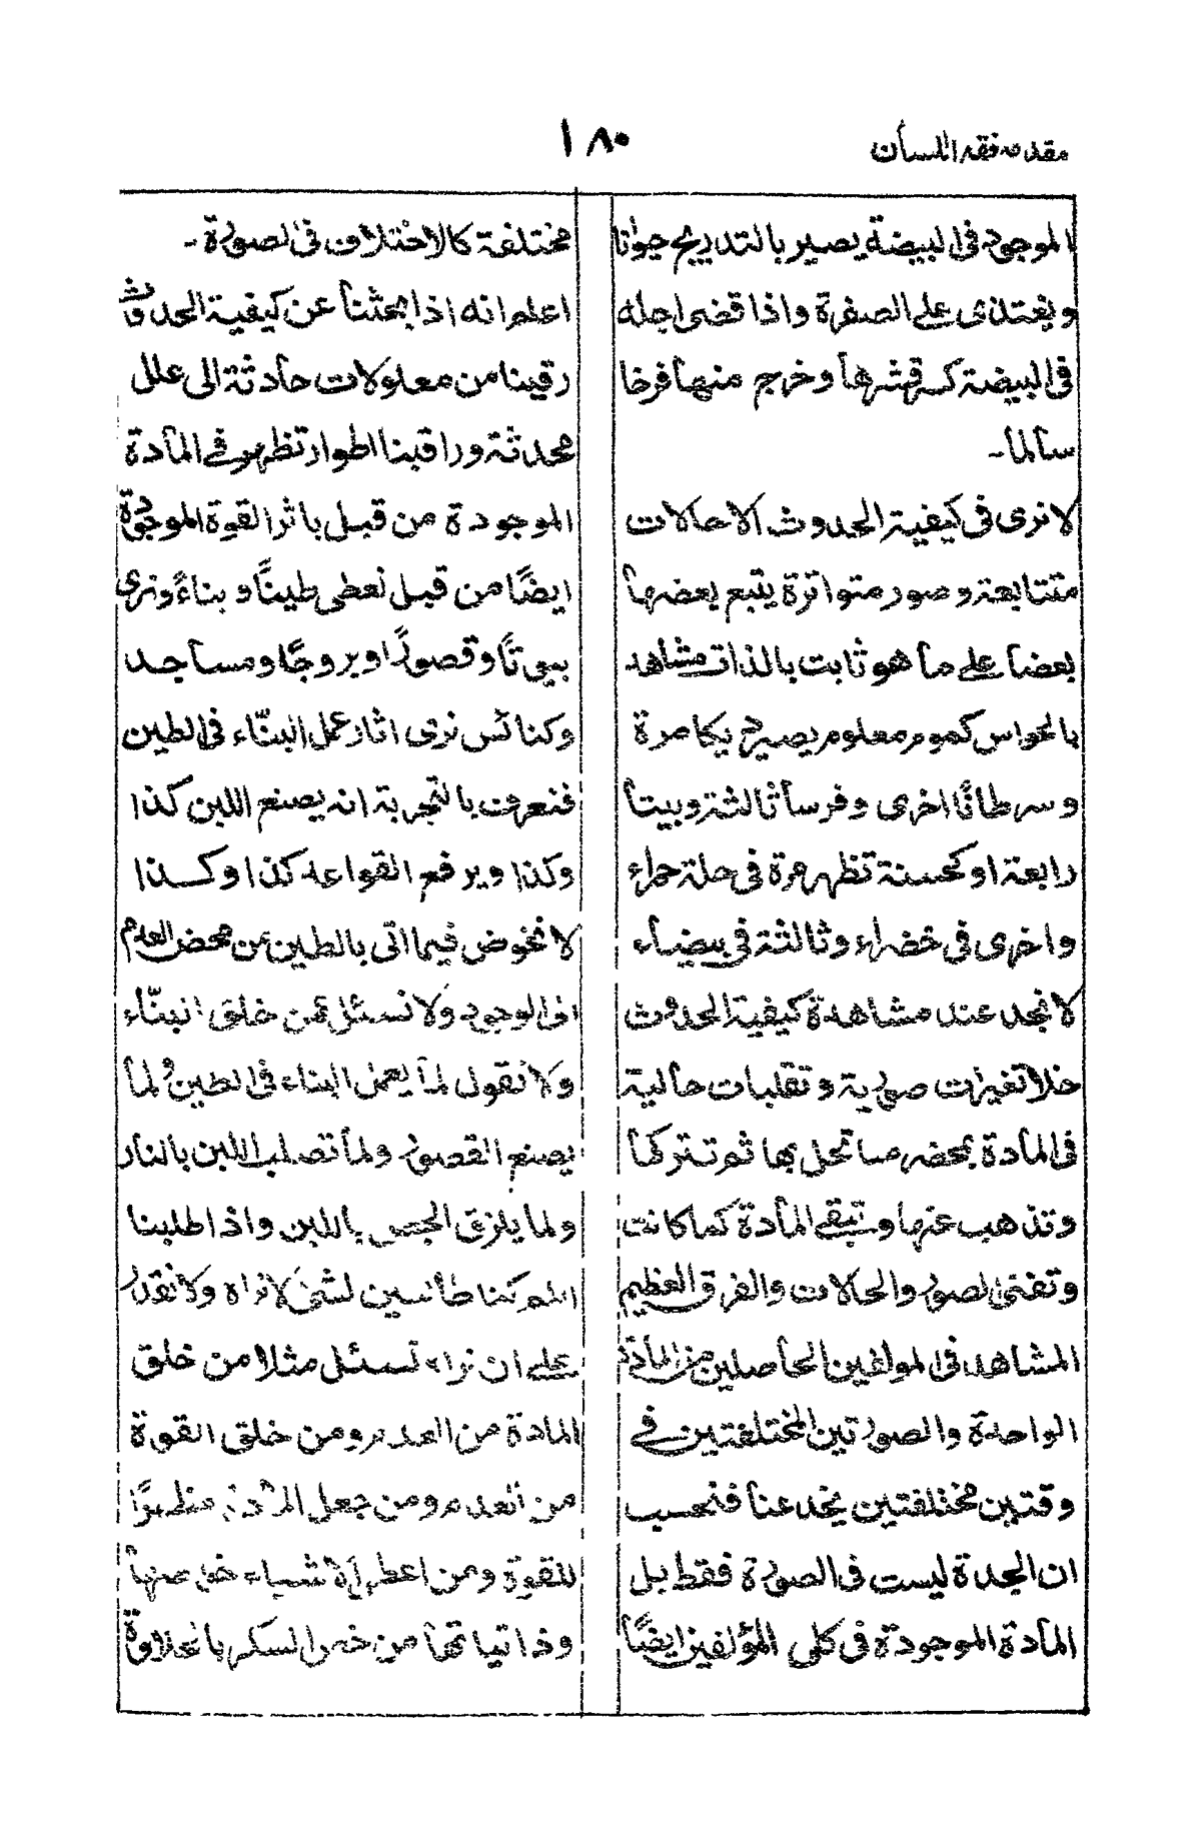 مقدمه فقه اللسان
١٨٠
الموجود فى البيضة يصير بالتدريج حيوانا
ويغتذى على الصفرة واذا قضى اجله
فى البيضة كسر قشرها وخرج منها فرخا
سالما۔
لا نرى فى كيفية الحدوث الا حالات
متتابعة وصور متواترة يتبع بعضها
بعضا على ما هو ثابت بالذات مشاهد
بالحواس كموم معلوم يصير مرة
وسرطانًا اخرى وفرسا ثالثة وبيتا
رابعة او كحسنة تظهر مرة فى حلة حمراء
واخرى فى خضراء وثالثة فى بيضاء
لا نجد عند مشاهدة كيفية الحدوث
خلا تغيرات صورية وتقلبات حالية
فى المادة بمحضر منا تحل بها ثم تتركها
وتذهب عنها وتبقى المادة كما كانت
وتفنى الصور والحالات والفرق العظيم
المشاهد فى المولفين الحاصلين من المادة
الواحدة والصورتين المختلفتين فى
وقتين مختلفتين يخدعنا فنحسب
ان الجدة ليست فى الصورة فقط بل
المادة الموجودة فى كلى المؤلفين ايضًا
مختلفة كالاختلاف فى الصورة۔
اعلم انه اذا بحثنا عن كيفية الحدوث
رقينا من معلولات حادثة الى علل
محدثة وراقبنا اطوار تظهر فى المادة
الموجودة من قبل باثر القوة الموجودة
ايضًا من قبل نعطى طينًا وبناءً ونرى
بيوتًا وقصورًا وبروجًا ومساجد
وكنائس نرى اثار عمل البنّاء فى الطين
فنعرف بالتجربة انه يصنع اللبن كذا
وكذا ويرفع القواعد كذا وكذا
لا نخوض فيما اتى بالطين من محض العدم
الى الوجود ولا نسئل عمن خلق البنّاء
ولا نقول لما يعمل البناء فى الطين ولما
يصنع القصور ولما تصلب اللبن بالنار
ولما يلزق الجص باللبن واذا طلبنا
اللم كنا طائسين لشئ لا نراه ولا نقدر
على ان نراه نسئل مثلا من خلق
المادة من العدم ومن خلق القوة
من العدم ومن جعل المادة مظهرًا
للقوة ومن اعطى الاشياء خواصها
وذاتياتها من خص السكر بالحلاوة